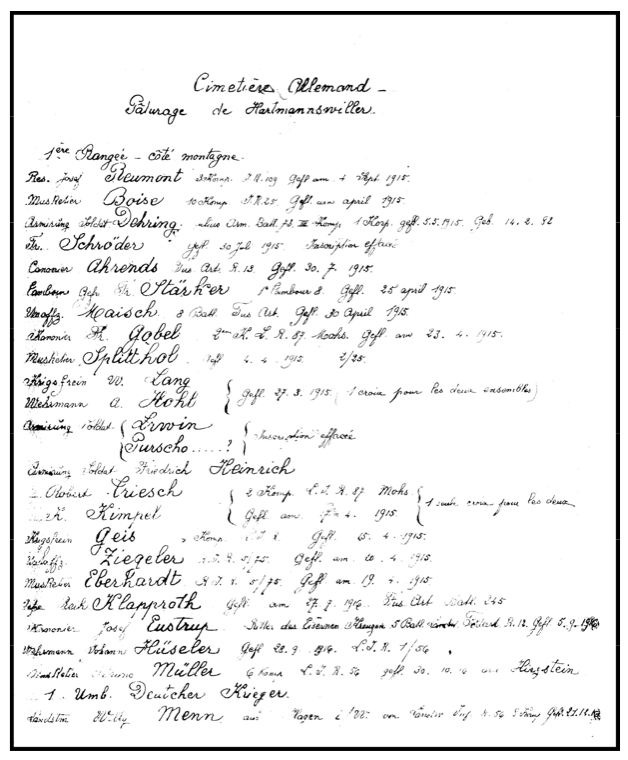 Cimetière Allemand -
Pâturage de Hartmannswiller.
1ère Rangée - côté montagne.
Res. Josef Reumont Komp. I.R. 109 Gefl. am 4 Sept. 1915.
Musketier Boise 10 Komp. I.R. 25. Gefl. am april 1915.
Armirung Soldat Dehring Arm. Batl. 78. III Komp. 1 Korp. gefl. 5.5.1915. Geb. 14. 2. 92
Fr. Schröder gefl. 30 Jul. 1915. Inscription effacée
Canonier Ahrends Fus Art. R. 13. Gefl. 30. 7. 1915.
Tambour Gefr. Fr. Stärker Tambour 8. Gefl. 25 april 1915.
Unoffz. Maisch 8 Batt. Fus Art. Gefl. 30 April 1915.
Kanonier Fr. Gobel K. L. R. 87. Mohs. Gefl. am 23. 4. 1915.
Musketier Splitthol Gefl. 4. 4. 1915. 2/25.
Krigsfrein W. Lang
Wehrmann A. Hohl Gefl. 27. 3. 1915. (1 croix pour les deux ensembles)
Armirung Soldat Erwin
Purscho.....? Inscription effacée
Armirung Soldat Friedrich Heinrich
Robert Criesch 2 Komp. L. I. R. 87 Mohs
K. Kimpel Gefl. am 4. 1915 1 seule croix pour les deux
Krigsfrein Geis Komp. I. R. Gefl. 15. 4. 1915.
Unoffz. Ziegeler I. R. 5/75. Gefl. am 4. 1915.
Musketier Eberhardt R. I. R. 5/75. Gefl. am. 19. 4. 1915.
Klapproth Gefl. am 27. 7. 1916. Fus Art. Batl. 245
Kanonier Josef Eustrup. Ritter des Eisernen Kreuzes 5 Batt. R. 12. Gefl. 5. 9. 1916
Wehrmann Johann Hüseler Gefl. 22. 9. 1916. L. I. R. 1/56.
Musketier Müller 6 Komp. L. I. R. 56 gefl. 30. 10. 16 am Hirzstein
1. Umb. Deutcher Krieger.
Landstm Willy Menn aus Hagen i/W. von Landw. Inf. R. 56 Komp.